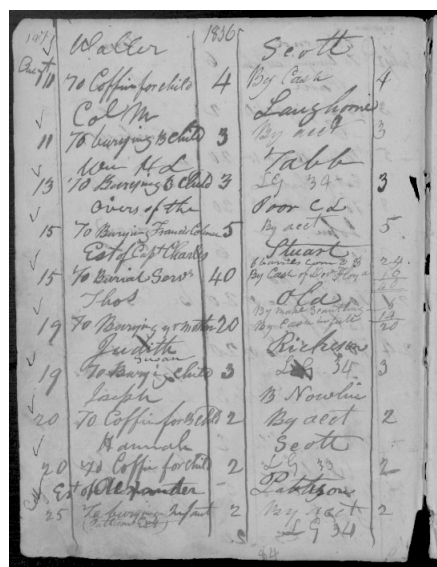 1836
Waller Scott
Augt
11 To Coffin for child 4 By Cash 4
Col M Langhorne
11 To burying B child 3 By acct 3
Wm H L Tabb
13 To Burying B child 3 LG 34 3
Overs of the Poor Ca
15 To Burying Francis 5 By acct 5
Est of Capt Charles Stuart
24
15 To Burial Servs 40 By Cash of 16
40
Thos Old
By
19 To Burying yr mother 20 By Cash in full
20
Judith Richeson
Susan
19 To Burying child 3 LG 35 3
Joseph B Nowlin
20 To Coffin for B child 2 By acct 2
Hannah Scott
20 To Coffin for child 2 LG 33 2
Est of Alexander Pattison
25 To burying Infant 2 By acct 2
LG 34